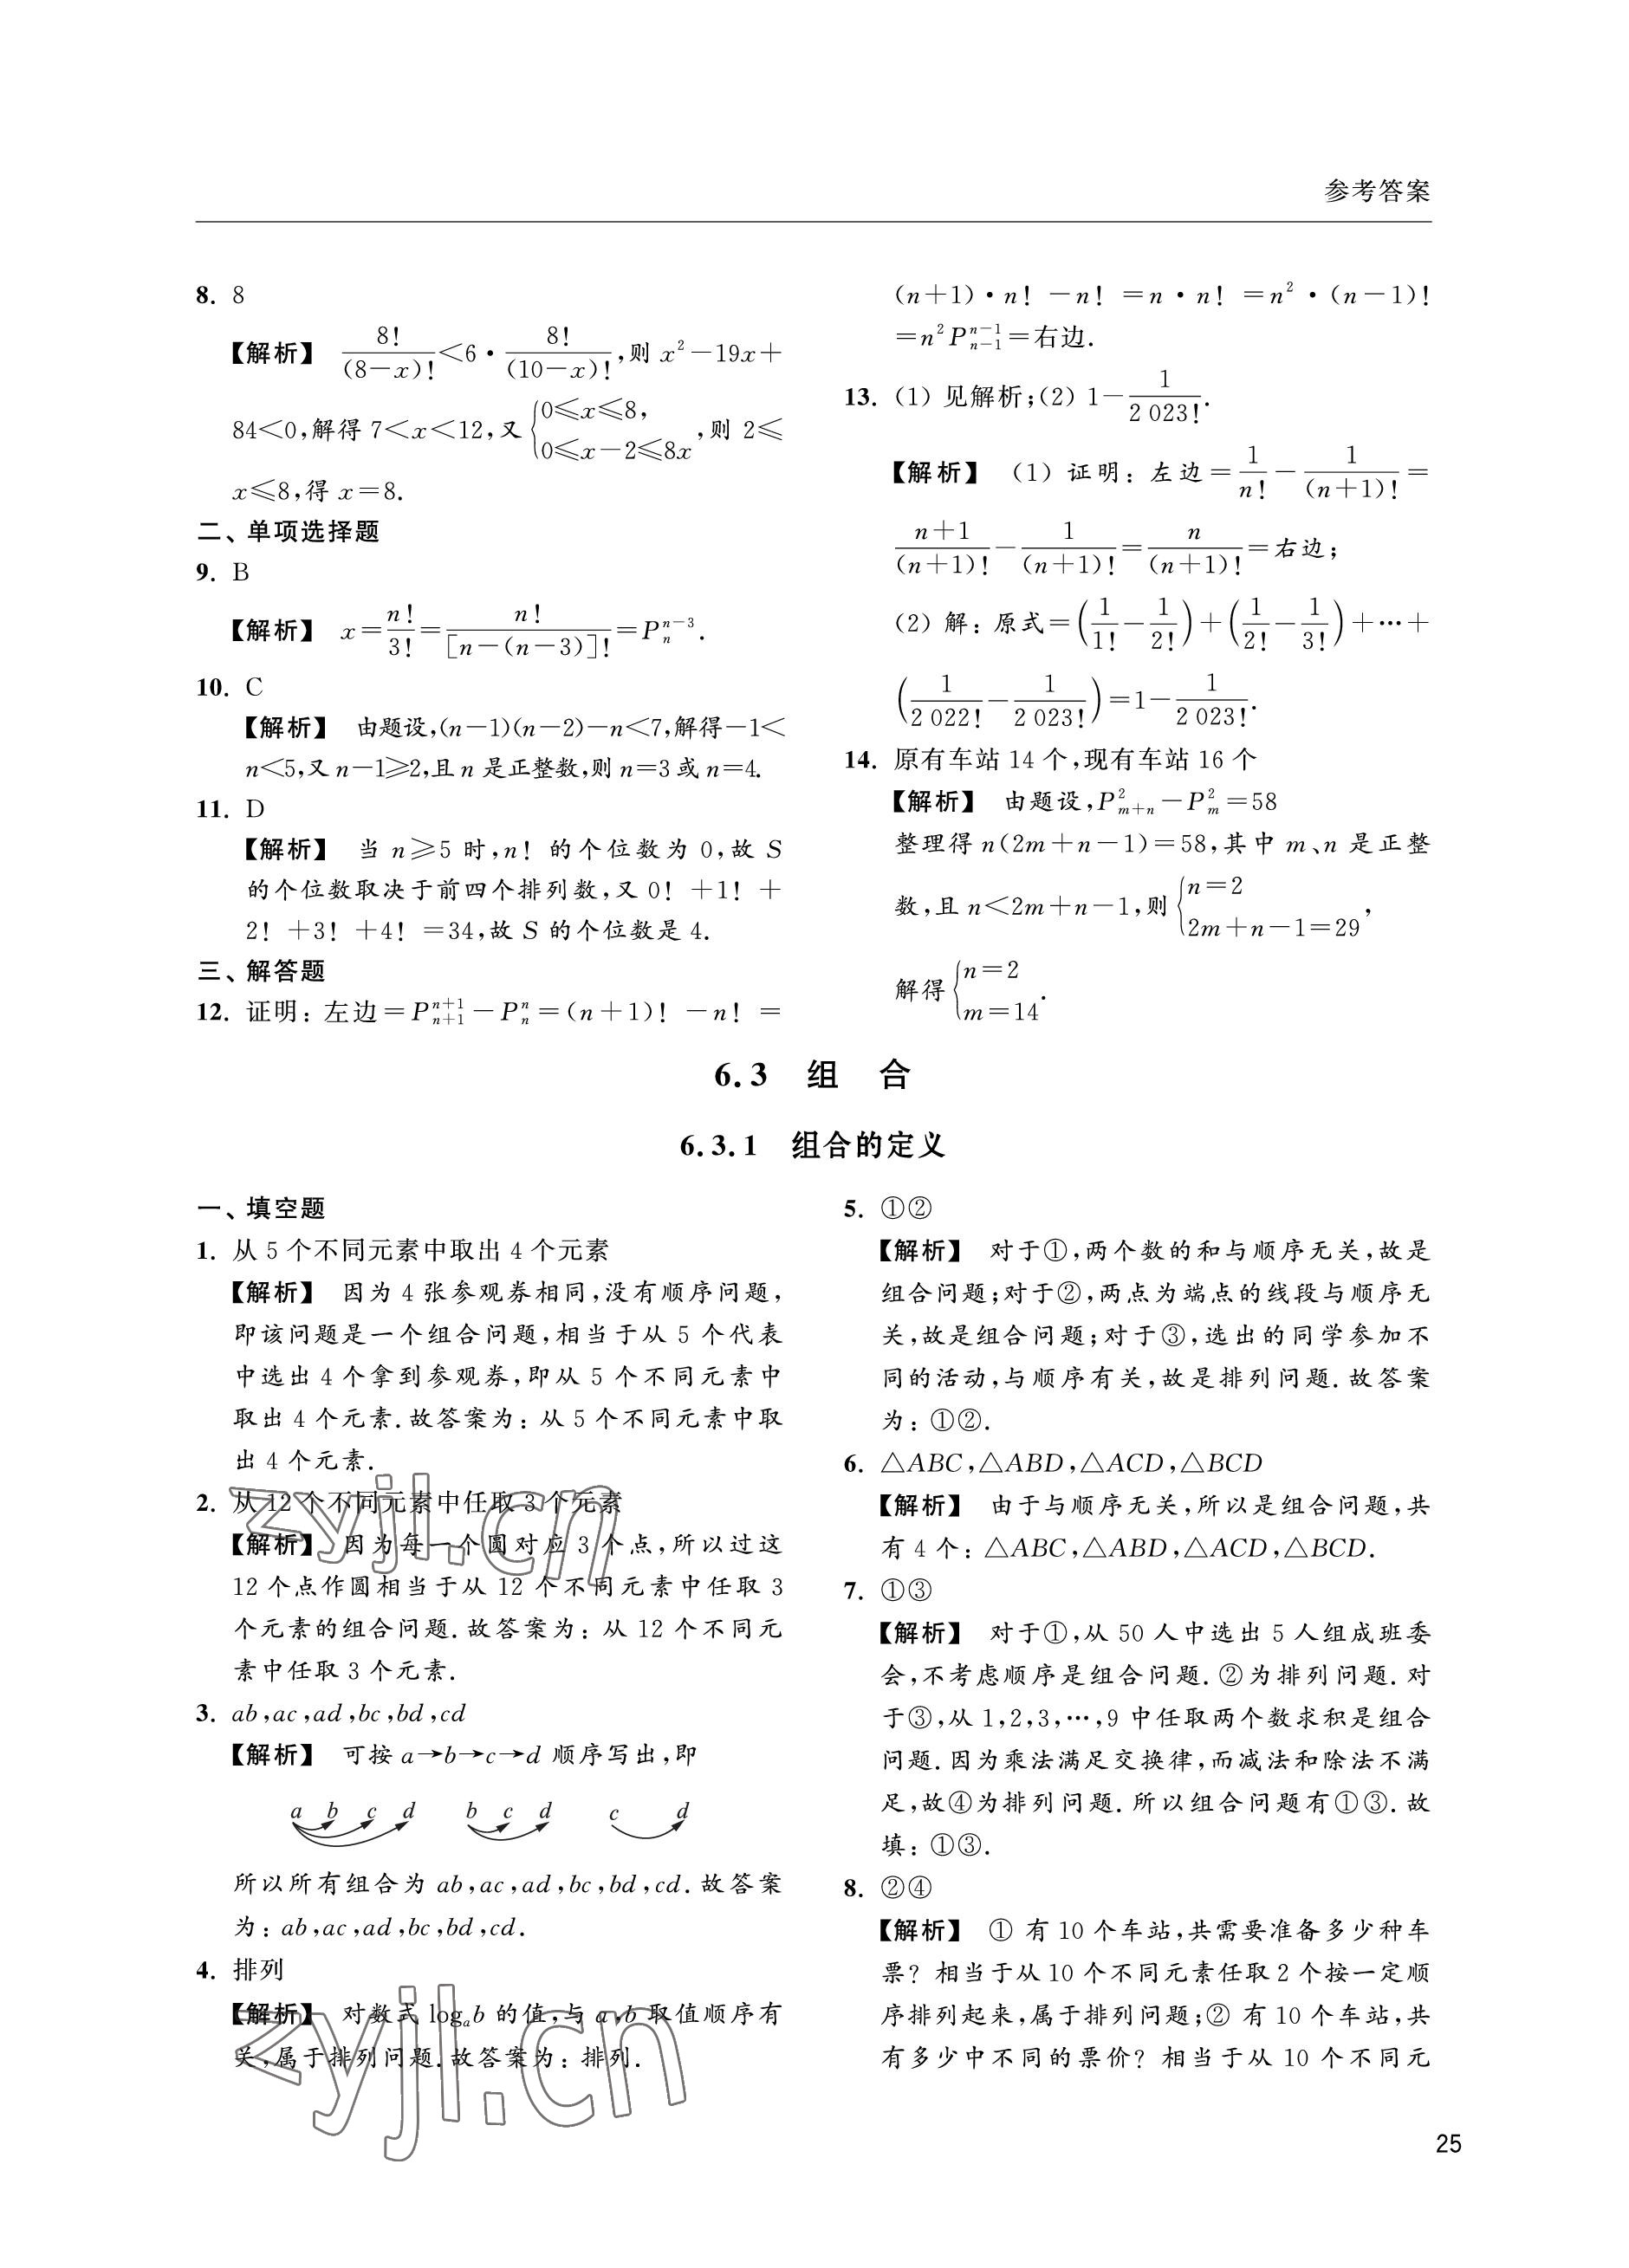 参考答案
8. 8
【解析】 8!/(8－x)!＜6·8!/(10－x)!,则 x²－19x＋
84＜0,解得 7＜x＜12,又{0≤x≤8, 0≤x－2≤8x,则 2≤
x≤8,得 x＝8.
二、单项选择题
9. B
【解析】 x＝n!/3!＝n!/[n－(n－3)]!＝P_n^{n－3}.
10. C
【解析】 由题设,(n－1)(n－2)－n＜7,解得－1＜
n＜5,又 n－1≥2,且 n 是正整数,则 n＝3 或 n＝4.
11. D
【解析】 当 n≥5 时,n! 的个位数为 0,故 S
的个位数取决于前四个排列数,又 0!＋1!＋
2!＋3!＋4!＝34,故 S 的个位数是 4.
三、解答题
12. 证明：左边＝P_{n＋1}^{n＋1}－P_n^n＝(n＋1)!－n!＝
(n＋1)·n!－n!＝n·n!＝n²·(n－1)!
＝n²P_{n－1}^{n－1}＝右边.
13. (1) 见解析;(2) 1－1/2 023!.
【解析】 (1) 证明：左边＝1/n!－1/(n＋1)!＝
(n＋1)/(n＋1)!－1/(n＋1)!＝n/(n＋1)!＝右边;
(2) 解：原式＝(1/1!－1/2!)＋(1/2!－1/3!)＋…＋
(1/2 022!－1/2 023!)＝1－1/2 023!.
14. 原有车站 14 个,现有车站 16 个
【解析】 由题设,P_{m＋n}^2－P_m^2＝58
整理得 n(2m＋n－1)＝58,其中 m、n 是正整
数,且 n＜2m＋n－1,则{n＝2 2m＋n－1＝29,
解得{n＝2 m＝14.
6.3 组 合
6.3.1 组合的定义
一、填空题
1. 从 5 个不同元素中取出 4 个元素
【解析】 因为 4 张参观券相同,没有顺序问题,
即该问题是一个组合问题,相当于从 5 个代表
中选出 4 个拿到参观券,即从 5 个不同元素中
取出 4 个元素.故答案为：从 5 个不同元素中取
出 4 个元素.
2. 从 12 个不同元素中任取 3 个元素
【解析】 因为每一个圆对应 3 个点,所以过这
12 个点作圆相当于从 12 个不同元素中任取 3
个元素的组合问题.故答案为：从 12 个不同元
素中任取 3 个元素.
3. ab,ac,ad,bc,bd,cd
【解析】 可按 a→b→c→d 顺序写出,即
a b c d b c d c d
所以所有组合为 ab,ac,ad,bc,bd,cd.故答案
为：ab,ac,ad,bc,bd,cd.
4. 排列
【解析】 对数式 logₐb 的值,与 a,b 取值顺序有
关,属于排列问题.故答案为：排列.
5. ①②
【解析】 对于①,两个数的和与顺序无关,故是
组合问题;对于②,两点为端点的线段与顺序无
关,故是组合问题;对于③,选出的同学参加不
同的活动,与顺序有关,故是排列问题.故答案
为：①②.
6. △ABC,△ABD,△ACD,△BCD
【解析】 由于与顺序无关,所以是组合问题,共
有 4 个：△ABC,△ABD,△ACD,△BCD.
7. ①③
【解析】 对于①,从 50 人中选出 5 人组成班委
会,不考虑顺序是组合问题.②为排列问题.对
于③,从 1,2,3,…,9 中任取两个数求积是组合
问题.因为乘法满足交换律,而减法和除法不满
足,故④为排列问题.所以组合问题有①③.故
填：①③.
8. ②④
【解析】 ① 有 10 个车站,共需要准备多少种车
票? 相当于从 10 个不同元素任取 2 个按一定顺
序排列起来,属于排列问题;② 有 10 个车站,共
有多少中不同的票价? 相当于从 10 个不同元
zyjl.cn
zyjl.cn
25